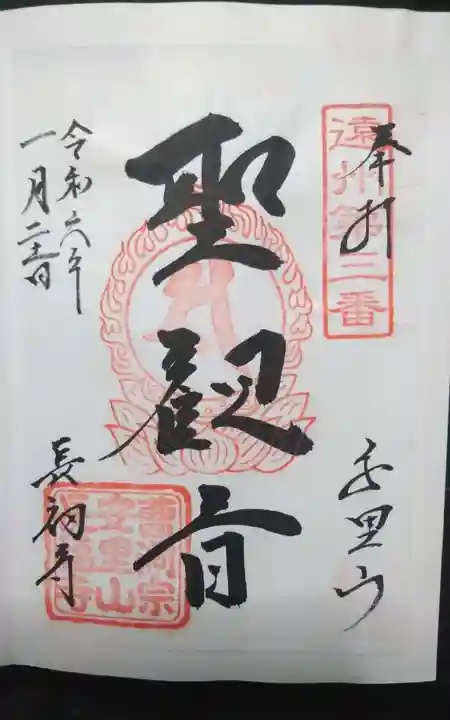 遠州第三番
奉拝
安里山
聖観音
令和六年
一月
長福寺
曹洞宗
安里山
長福寺